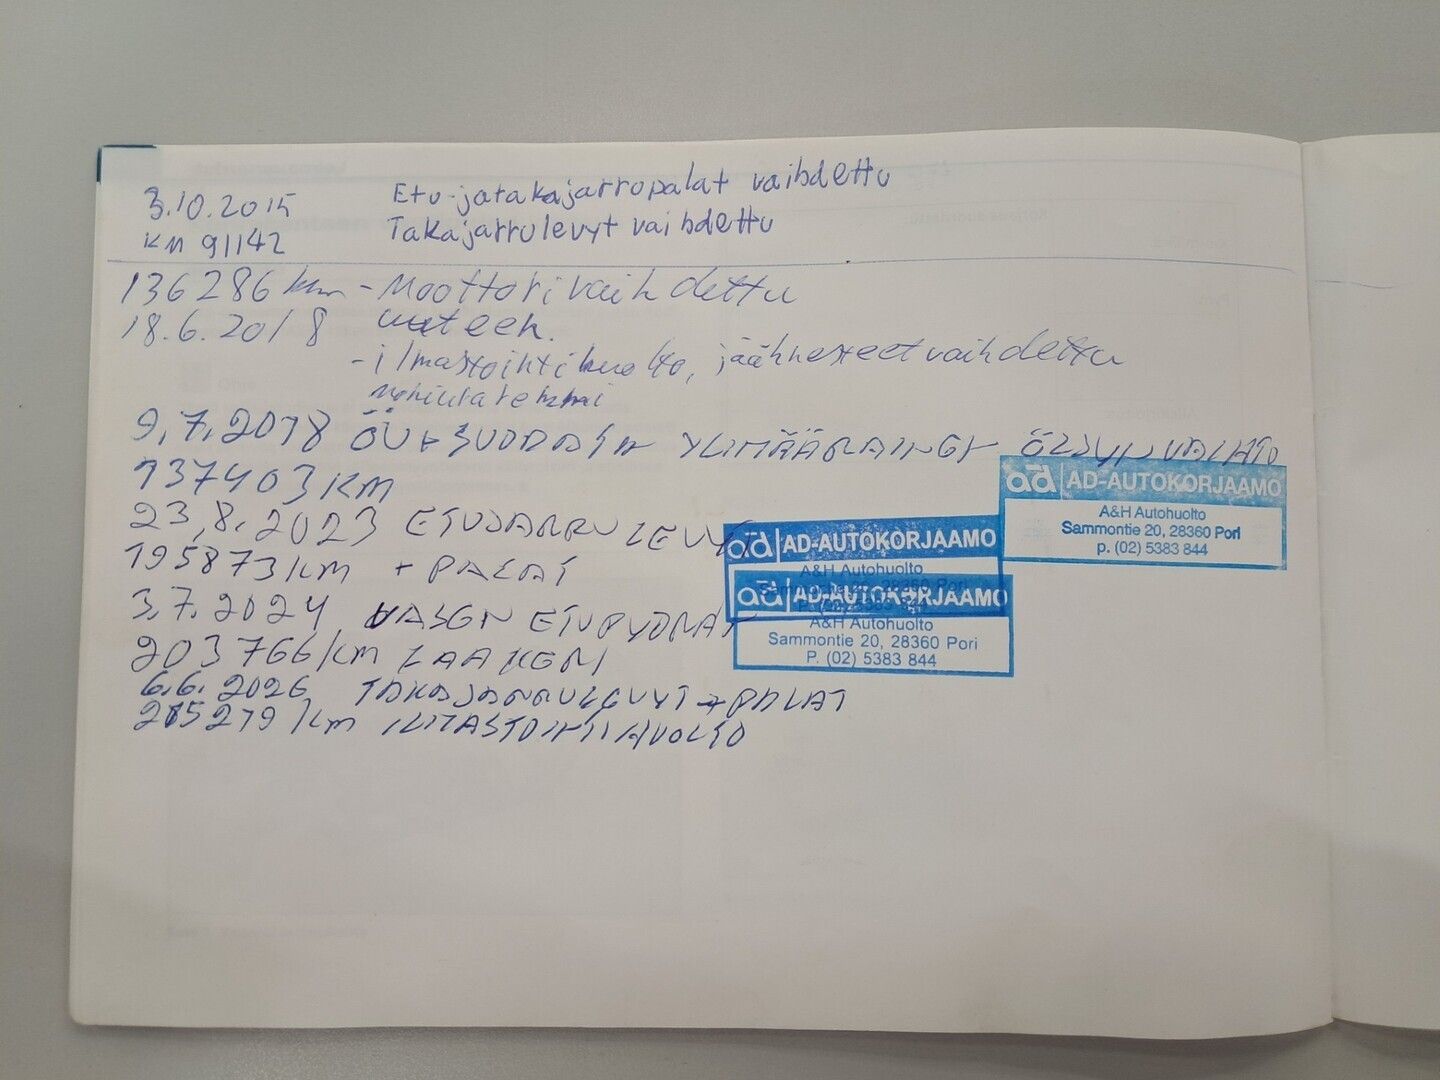 3.10.2015 Etu-jatakajarropalat vaihdettu
KM 91142 Takajarrulevyt vaihdettu
136286 km - Moottori vaihdettu
18.6.2018 uuteen.
- ilmastointihuolto, jäähnesteet vaihdettu
9.7.2018 ÖLJY + SUODATIN YLIMÄÄRAINEN ÖLJYNVAIHTO
137403 KM
AD-AUTOKORJAAMO
A&H Autohuolto
Sammontie 20, 28360 Pori
p. (02) 5383 844
23,8.2023 ETUJARRULEVYT
195873 KM + PALAT
AD-AUTOKORJAAMO
A&H Autohuolto
3.7.2024 VASEN ETUPYÖRÄN
203766 KM LAAKERI
AD-AUTOKORJAAMO
A&H Autohuolto
Sammontie 20, 28360 Pori
P. (02) 5383 844
6.6.2026 TAKAJARRULEVYT + PALAT
215279 KM ILMASTOINTIHUOLTO